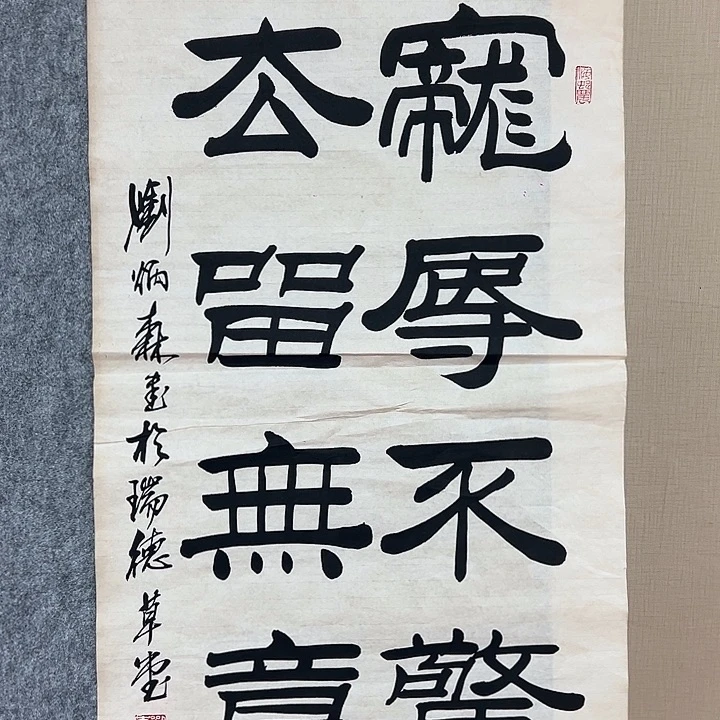 寵辱不驚
去留無意
劉炳森書於瑞德草堂